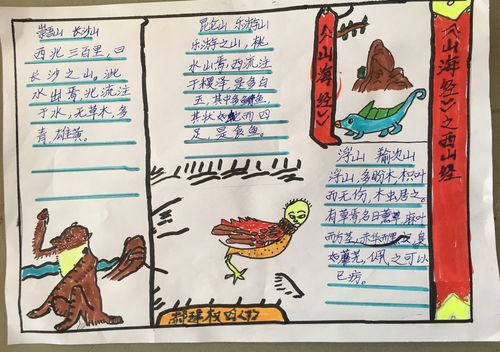 《山海经》之西山经
《山海经》
崇吾山 长沙山
西北三百里,曰
长沙之山,泚
水出焉,北流注
于水,无草木,多
青雄黄。
昆仑山 乐游山
乐游之山,桃
水出焉,西流注
于稷泽,是多白
玉,其中多鱼,
其状如蛇而四
足,是食鱼。
浮山 羭次山
浮山,多盼木,枳叶
而无伤,木虫居之。
有草焉名曰薰草,麻叶
而方茎,赤华而黑实,臭
如蘼芜,佩之可以
已疠。